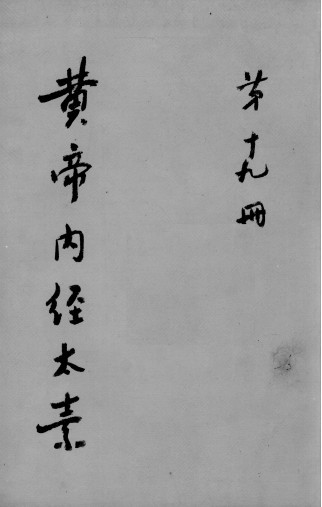 第十九冊
黄帝内经太素